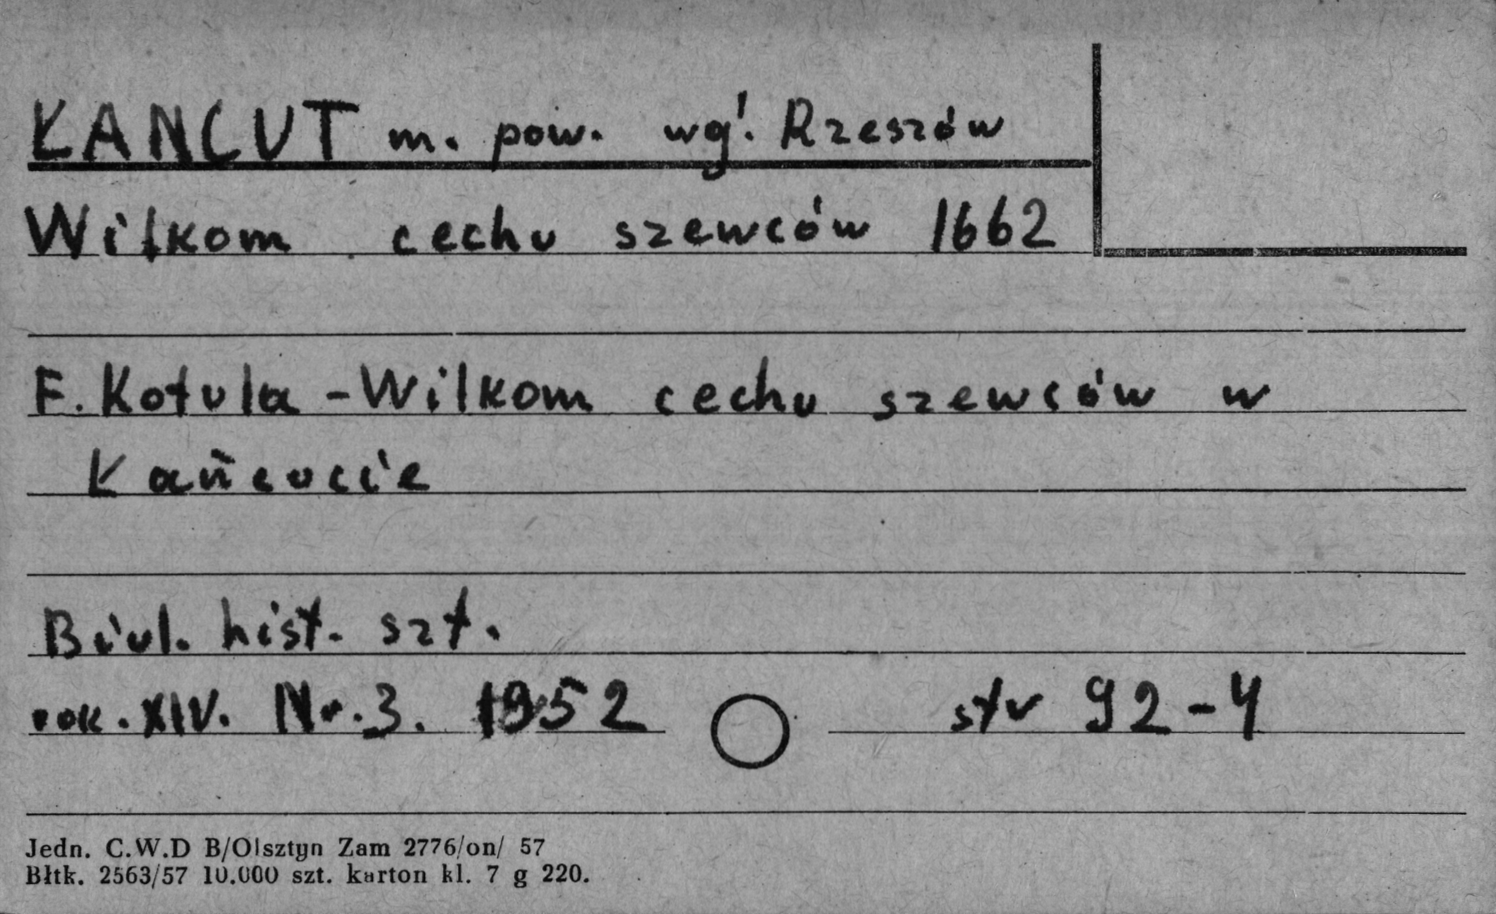 ŁANCUT m. pow. wg! Rzeszów
Wilkom cechu szewców 1662
F. Kotula - Wilkom cechu szewców w
Łańcucie
Biul. hist. szt.
rok. XIV. Nr. 3. 1952 str 92-4
Jedn. C.W.D B/Olsztyn Zam 2776/on/ 57
Błtk. 2563/57 10.000 szt. karton kl. 7 g 220.